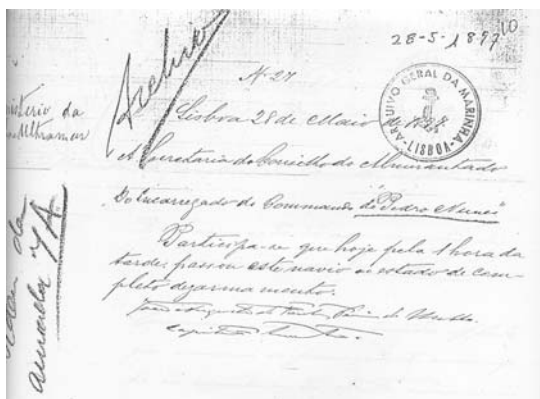 10
28-5-1897
Archive
Nº 27
Lisboa 28 de Maio de 1897
ARQUIVO GERAL DA MARINHA
-LISBOA-
isterio da
Ultramar
Á Secretaria do Conselho do Almirantado
Do Encarregado do Commando do "Pedro Nunes"
Participa-se que hoje pela 1 hora da
tarde, passou este navio ao estado de com-
pleto desarmamento.
João Augusto de
Capitão Tenente.
armada 4A